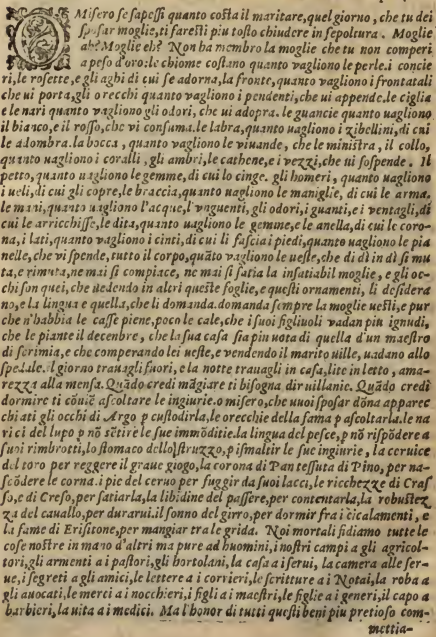 O Misero se sapessi quanto costa il maritare, quel giorno, che tu dei
sposar moglie, ti faresti piu tosto chiudere in sepoltura. Moglie
ah? Moglie eh? Non ha membro la moglie che tu non comperi
a peso d'oro: le chiome costano quanto vagliono le perle. i concie
ri, le rosette, e gli aghi di cui se adorna, la fronte, quanto vagliono i frontali
che ui porta, gli orecchi quanto vagliono i pendenti, che ui appende. le ciglia
e le nari quanto vagliono gli odori, che ui adopra. le guancie quanto uagliono
il bianco, e il rosso, che vi consuma. le labra, quanto uagliono i zibellini, di cui
le adombra. la bocca, quanto vagliono le viuande, che le ministra, il collo,
quanto uagliono i coralli, gli ambri, le cathene, e i vezzi, che ui sospende. Il
petto, quanto uagliono le gemme, di cui lo cinge. gli homeri, quanto uagliono
i ueli, di cui gli copre, le braccia, quanto uagliono le maniglie, di cui le arma.
le mani, quanto uagliono l'acque, l'vnguenti, gli odori, i guanti, e i ventagli, di
cui le arricchisse, le dita, quanto uagliono le gemme, e le anella, di cui le coro-
na, i lati, quanto vagliono i cinti, di cui li fascia i piedi, quanto uagliono le pia
nelle, che vi spende, tutto il corpo, quãto vagliono le ueste, che di dì in dì si mu
ta, e rimuta, ne mai si compiace, ne mai si satia la insatiabil moglie, e gli oc-
chi son quei, che uedendo in altri queste foglie, e questi ornamenti, li desidera
no, e la lingua e quella, che li domanda. domanda sempre la moglie uesti, e pur
che n'habbia le casse piene, poco le cale, che i suoi figliuoli vadan piu ignudi,
che le piante il decembre, che la sua casa sia piu uota di quella d'un maestro
di scrimia, e che comperando lei ueste, e vendendo il marito uille, uadano allo
spedale. Il giorno trauagli fuori, e la notte trauagli in casa, lite in letto, ama-
rezza alla mensa. Quãdo credi mãgiare ti bisogna dir uillanie. Quãdo credi
dormire ti cõuiẽ ascoltare le ingiurie. o misero, che uuoi sposar dõna apparec
chiati gli occhi di Argo p custodirla, le orecchie della fama p ascoltarla. le na
rici del lupo p nõ sẽtire le sue immõditie. la lingua del pesce, p nõ rispõdere a
suoi rimbrotti, lo stomaco dello struzzo, p ismaltir le sue ingiurie, la ceruice
del toro per reggere il graue giogo, la corona di Pan tessuta di Pino, per na-
scõdere le corna. i pie del ceruo per fuggir da suoi lacci, le ricchezze di Cras
so, e di Creso, per satiarla, la libidine del passere, per contentarla, la robustez
za del cauallo, per durarui. il sonno del girro, per dormir fra i cicalamenti, e
la fame di Erisitone, per mangiar tra le grida. Noi mortali fidiamo tutte le
cose nostre in mano d'altri ma pure ad huomini, i nostri campi a gli agricol-
tori, gli armenti a i pastori, gli hortolani, la casa a i serui, la camera alle ser-
ue, i segreti a gli amici, le lettere a i corrieri, le scritture a i Notai, la roba a
gli auocati, le merci a i nocchieri, i figli a i maestri, le figlie a i generi, il capo a
barbieri, la uita a i medici. Ma l'honor di tutti questi beni piu pretioso com-
mettia-